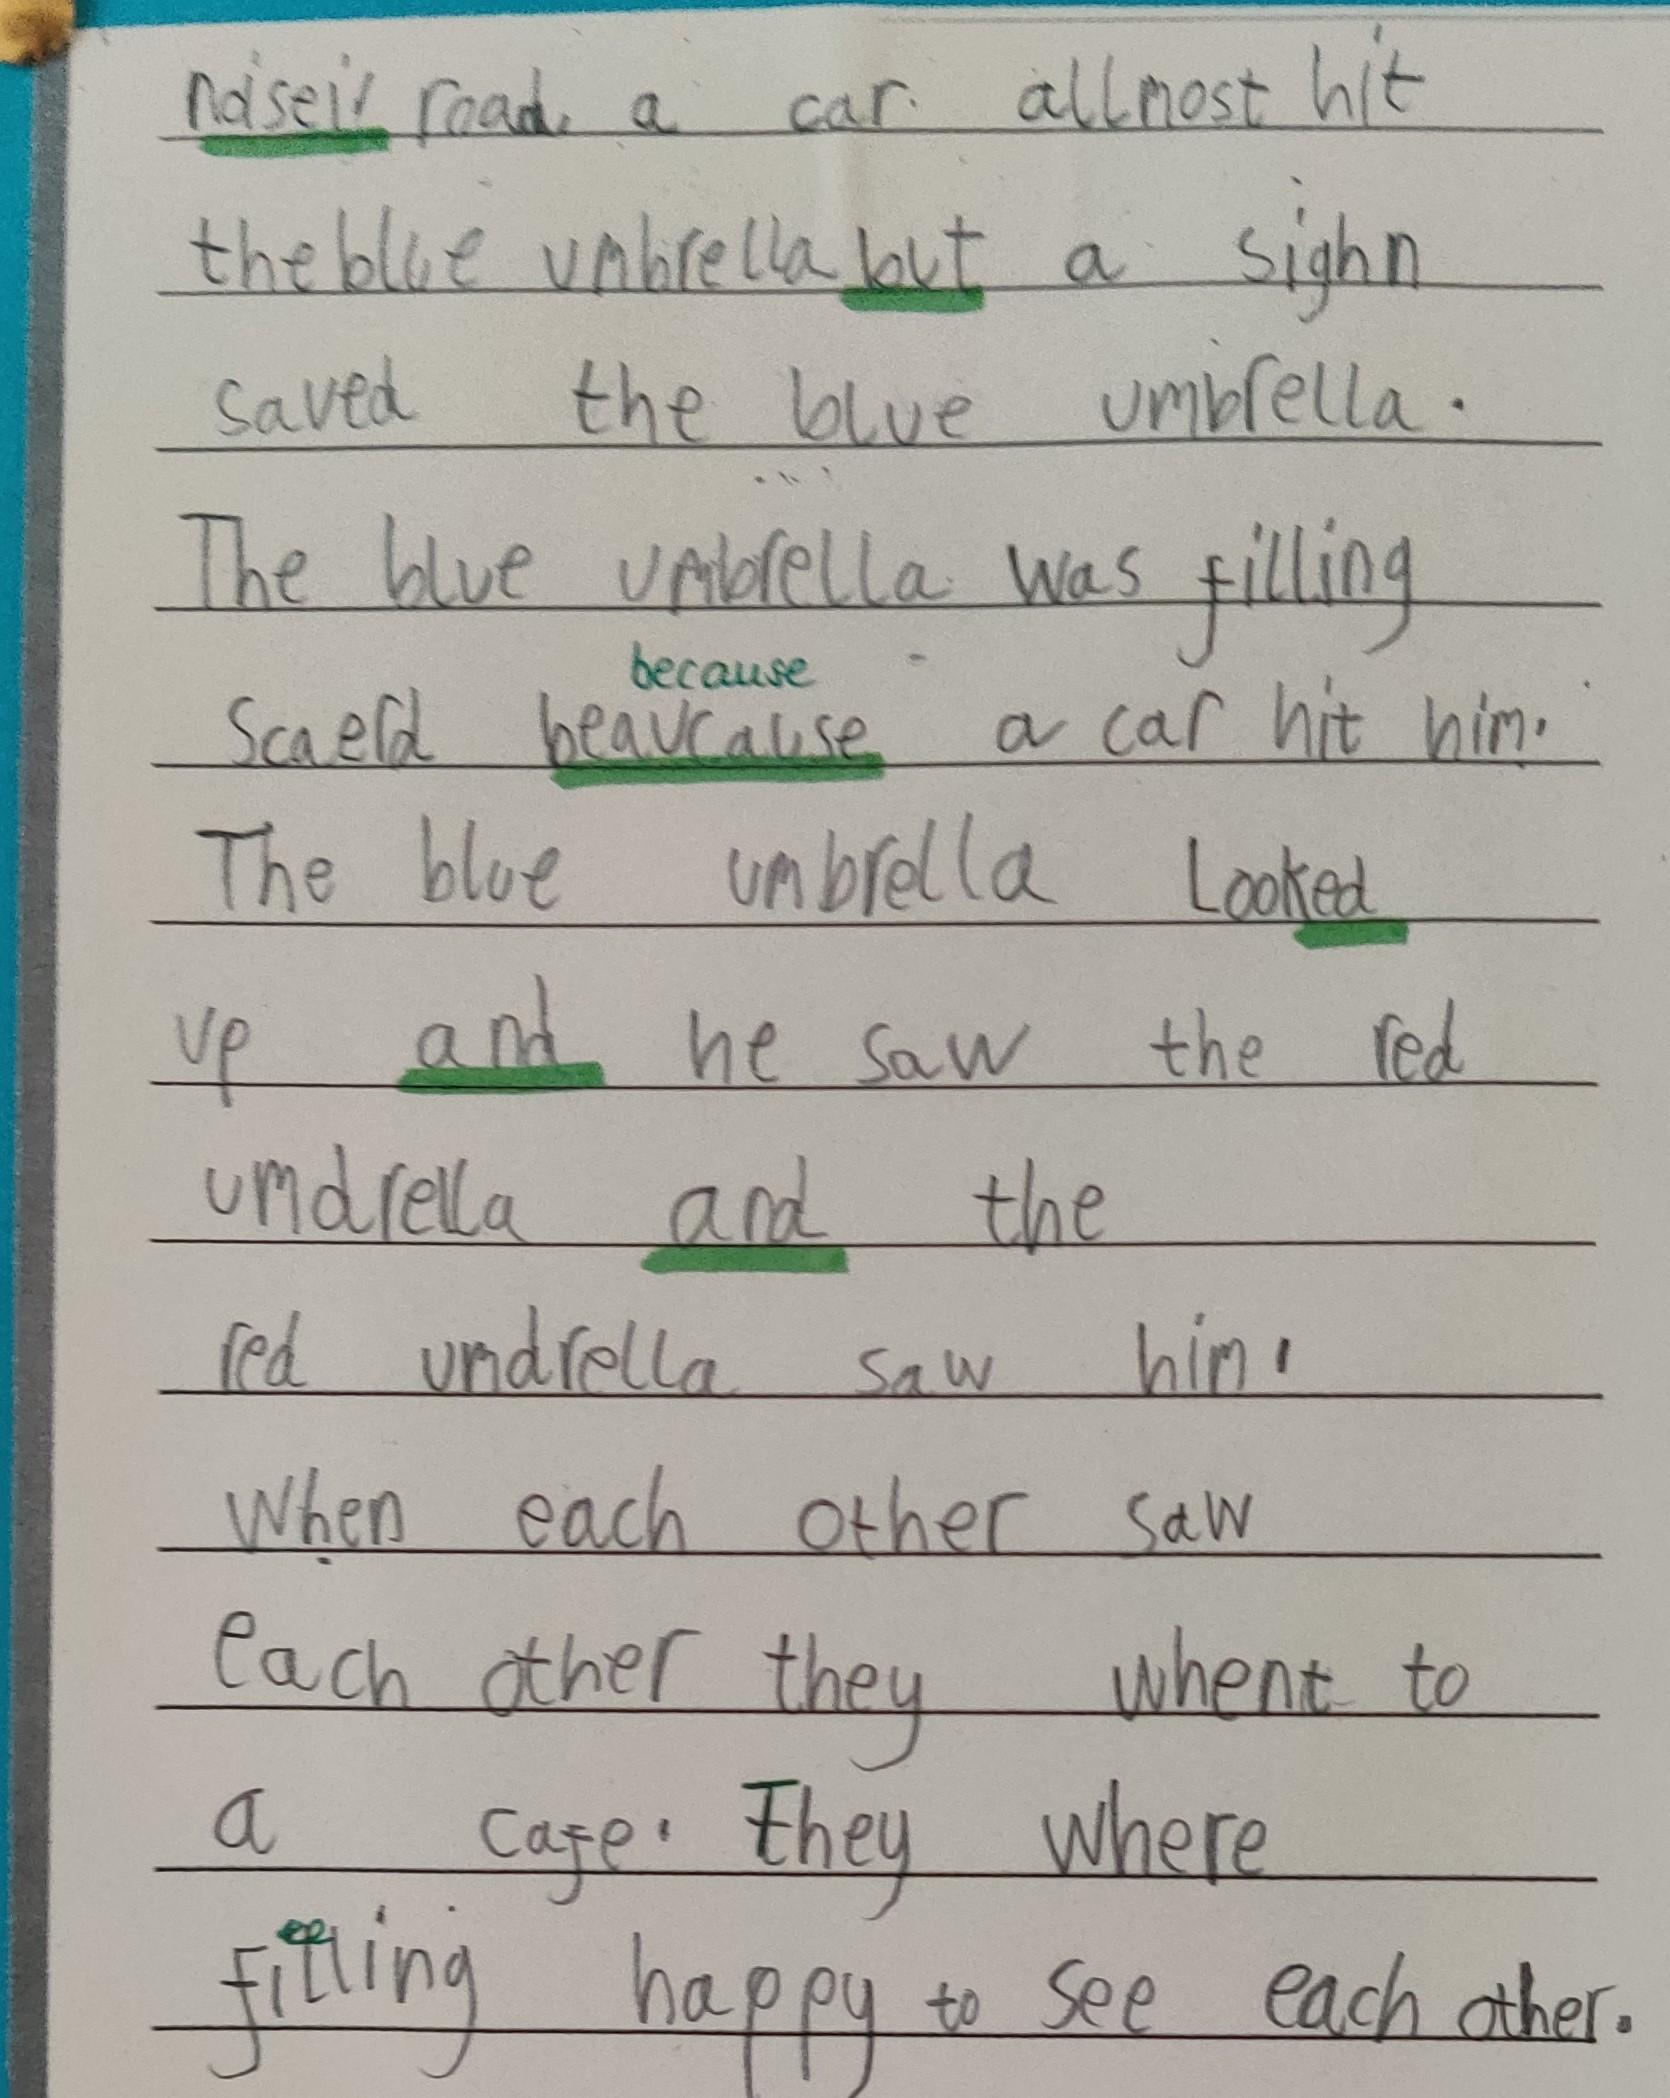 noiseir road. a car allmost hit
the blue umbrella but a sighn
saved the blue umbrella.
The blue umbrella was filling
because
Scaerd beaucause a car hit him.
The blue umbrella Looked
up and he saw the red
umdrella and the
red umdrella saw him.
When each other saw
each other they whent to
a cafe. They where
ee
filling happy to see each other.